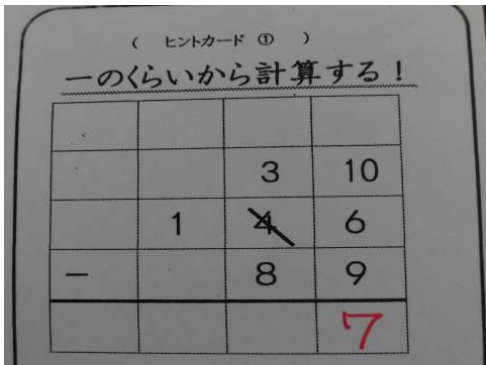 ( ヒントカード ① )
一のくらいから計算する！
3 10
1 4 6
− 8 9
7